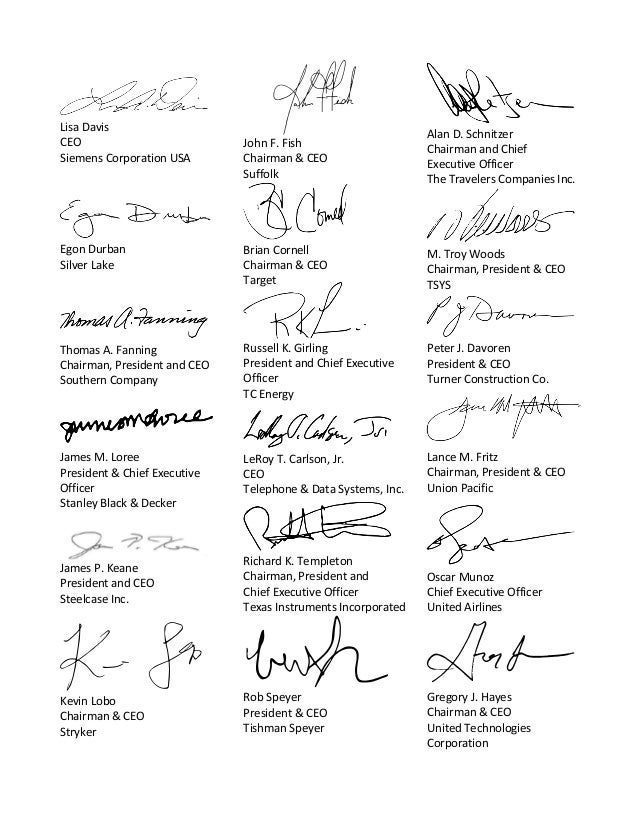 Lisa Davis
CEO
Siemens Corporation USA
John F. Fish
Chairman & CEO
Suffolk
Alan D. Schnitzer
Chairman and Chief
Executive Officer
The Travelers Companies Inc.
Egon Durban
Egon Durban
Silver Lake
Brian Cornell
Chairman & CEO
Target
M. Troy Woods
Chairman, President & CEO
TSYS
Thomas A. Fanning
Thomas A. Fanning
Chairman, President and CEO
Southern Company
Russell K. Girling
President and Chief Executive
Officer
TC Energy
P. J. Davoren
Peter J. Davoren
President & CEO
Turner Construction Co.
James M. Loree
President & Chief Executive
Officer
Stanley Black & Decker
LeRoy T. Carlson, Jr.
CEO
Telephone & Data Systems, Inc.
Lance M. Fritz
Chairman, President & CEO
Union Pacific
James P. Keane
President and CEO
Steelcase Inc.
Richard K. Templeton
Chairman, President and
Chief Executive Officer
Texas Instruments Incorporated
Oscar Munoz
Chief Executive Officer
United Airlines
Kevin Lobo
Chairman & CEO
Stryker
Rob Speyer
President & CEO
Tishman Speyer
Gregory J. Hayes
Chairman & CEO
United Technologies
Corporation